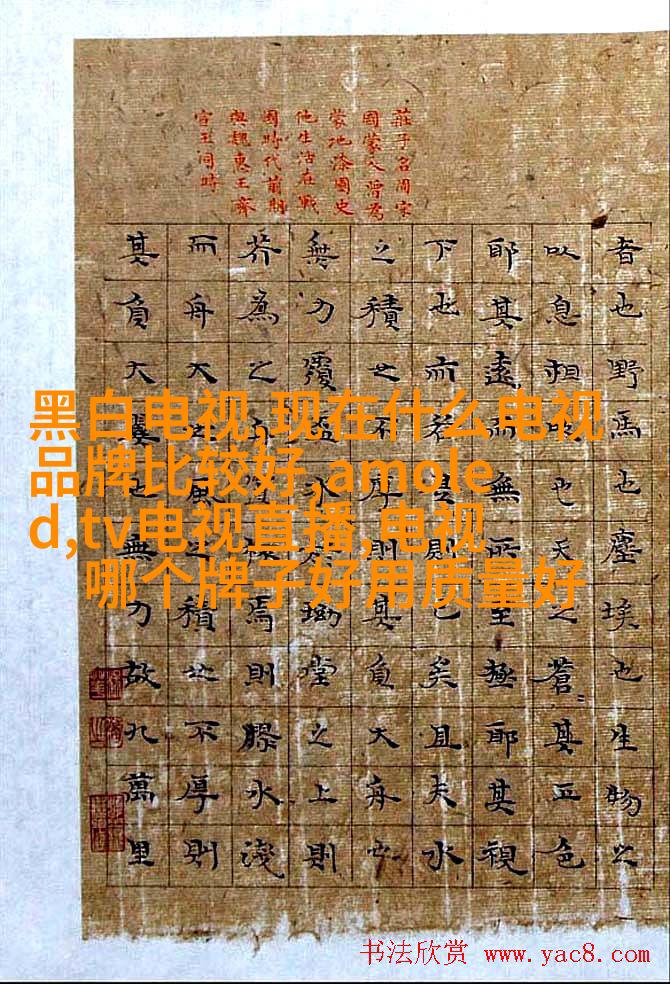 莊子名周宋
國蒙人曾為
蒙地漆園史
他生活在戰
國時代前期
與魏惠王齊
宣王同時
者也野馬也塵埃也生物之
以息相吹也天之蒼〻其正色
耶其遠而無所至極耶其視
下也而若是則已矣且夫水
之積也不厚則其負大舟也
無力覆盃水於坳堂之上則
芥為之舟焉則膠水淺
而舟大也風之積也不厚則
其負大翼也無力故九萬里
黑白电视,现在什么电视
品牌比较好,amole
d,tv电视直播,电视
哪个牌子好用质量好
书法欣赏 www.yac8.com